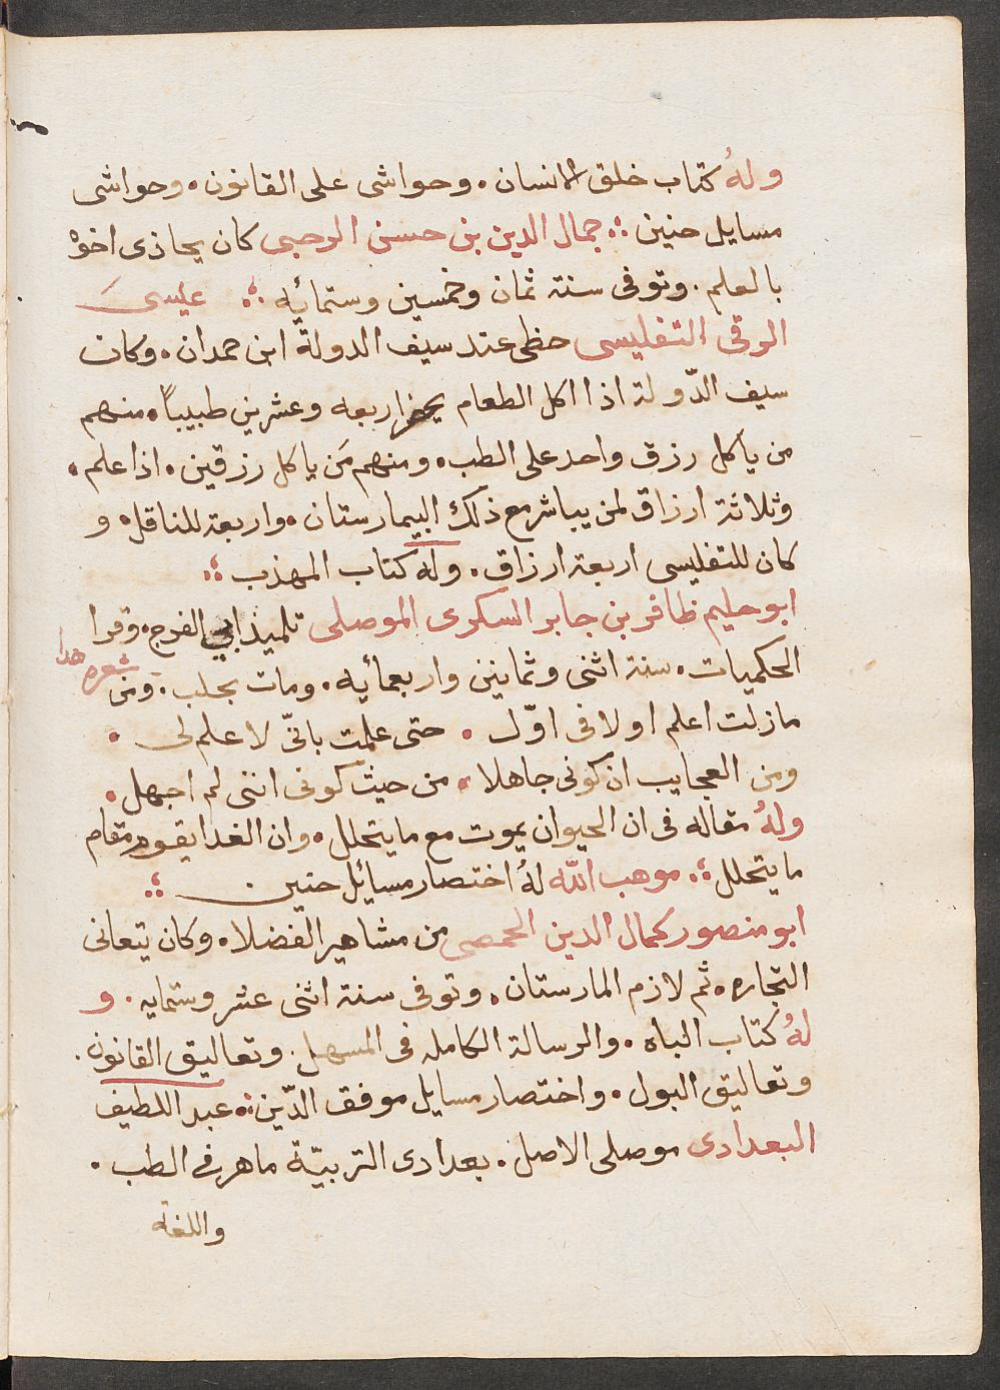 وله كتاب خلق الانسان. وحواشى على القانون. وحواشى
مسايل حنين ؞ جمال الدين بن حسن الرحبى كان يحاذى اخوه
بالعلم. وتوفى سنة ثمان وخمسين وستمائيه ؞ عيسى
الرقى التفليسى حظى عند سيف الدولة ابن حمدان. وكان
سيف الدّولة اذا اكل الطعام يحضر اربعه وعشرين طبيباً. منهم
من ياكل رزق واحد على الطب. ومنهم من ياكل رزقين. اذا علم.
وثلاثة ارزاق لمن يباشر مع ذلك البيمارستان. واربعة للناقل. و
كان للتفليسى اربعة ارزاق. وله كتاب المهذب ؞
ابو حليم ظافر بن جابر السكرى الموصلى تلميذ ابي الفرج. وقرا
الحكميات. سنة اثنى وثمانين واربعمأيه. ومات بحلب. ومن
شعره هدا
مازلت اعلم اولا فى اوّل . حتى علمت بانّى لا علم لى .
ومن العجايب ان كونى جاهلا . من حيث كونى اننى لم اجهل .
وله مقاله فى ان الحيوان يموت مع ما يتحلل. وان الغدا يقوم مقام
ما يتحلل ؞ موهب الله له اختصار مسائل حنين . ؞
ابو منصور كمال الدين الحمصى من مشاهير الفضلا. وكان يتعانى
التجاره. ثم لازم المارستان. وتوفى سنة اثنى عشر وستمايه. و
له كتاب الباه. والرسالة الكامله فى المسهل. وتعاليق القانون.
وتعاليق البول. واختصار مسايل موفق الدّين ؞ عبد اللطيف
البعدادى موصلى الاصل. بعدادى التربيّة ماهر في الطب.
واللغة